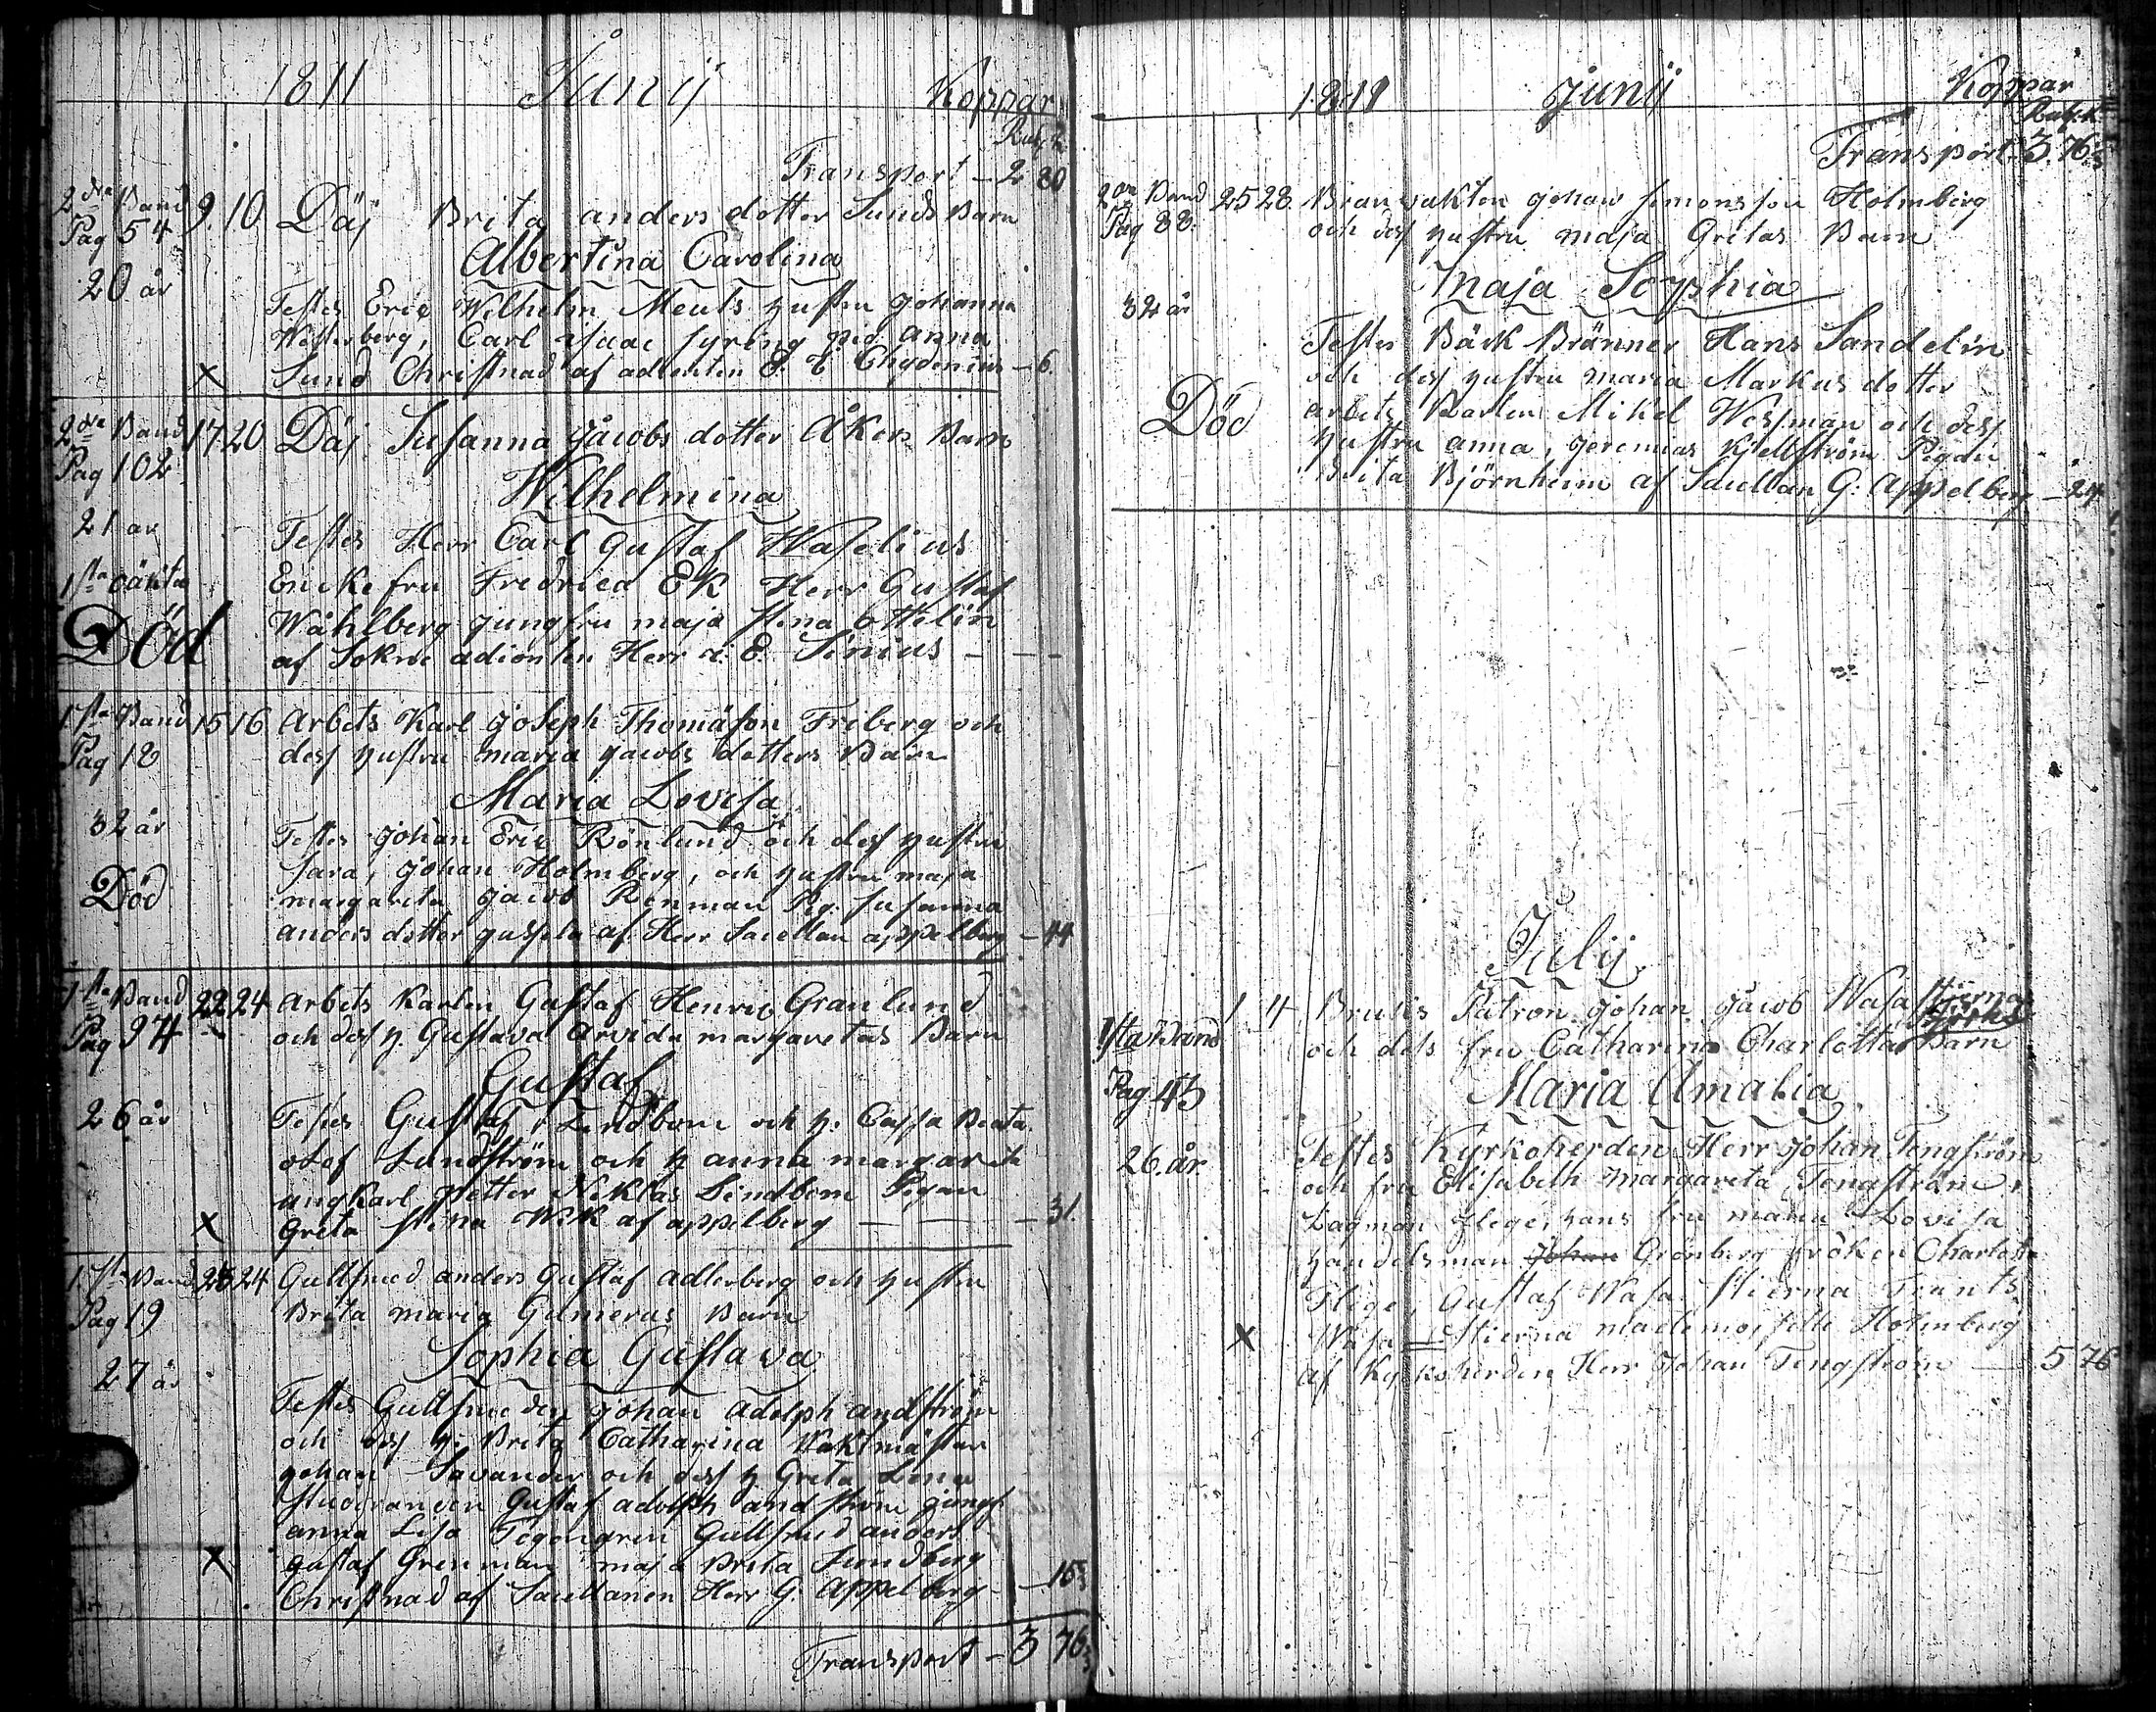 1811 Junij Koppar
Rub. k.
Transport - 2 80
2dra Band 9. 10 Däj Brita anders dotter Sunds Barn
Pag 54
Albertina Carolina
20 år
Testes Eric Wilhelm Meuls hustru Johanna
Westerberg, Carl isaac syring pig. anna
x Sund Christnad af adienten E. E Chydenius - 6.
2dra Band 17 20 Däj Susanna Jacobs dotter Åkers Barn
Pag 102
Wilhelmina
21 år
Testes Herr Carl Gustaf Waselius
1sta oäkta Encke fru Fredrica Ek Herr Gustaf
Död Wåhlberg jungfru maja Stina Ottelin
af Sokne adionten Herr E. Sinius - - -
1sta Band 15 16 arbets Karl Joseph Thomäson Friberg och
Pag 18 dess hustru maria Jacobs dotters Barn
Maria Lovisa
32 år
Testes Johan Eric Rönlund och dess hustru
Sara, Johan Holmberg, och hustru maja
Död margareta Jacob Renman Pig. Susanna
anders dotter af Herr Sacellan appelberg - 44
1sta Band 22 24 arbets karlen Gustaf Henric Granlund
Pag 94 och dess h. Gustava Arvida margaretas Barn
Gustaf
26 år Testes Gustaf Lindbom och h. Cajsa Beata
olof Lundström och h anna margareta
ungkarl Petter Niklas Lindbom Pigan
x Greta Stina Wik af appelberg - - - 31.
1sta Band 24 Gullsmed anders Gustaf adlerberg och hustru
Pag 19 Brita maria Gumerus Barn
Sophia Gustava
27 år
Testes Gullsmeden Johan adolph andström
och dess h. Brita Catharina Waktmästar
Johan Savander och dess h Greta Lena
Studeranden Gustaf adolph andström jungf.
anna Lisa Tegengren Gullsmed anders
x Gustaf Grenman maja Brita Sundberg
Christnad af Sacellanen Herr G. Appelberg - 15
Transport - 3 76
1811 Junij Koppar
Rub. k.
Transport. 3. 76.
2dra Band 25 28. Branvakten Johan Simonsson Holmberg
Pag 88. och dess hustru maja Gretas Barn
Maja Sophia
32 år
Testes Bäck Bränner Hans Sandelin
och dess hustru maria Markus dotter
Död arbets Karlen Mikel Wesman och dess
hustru anna, Jeremias Kjellström Pigan
Brita Björnheim af Sacellan G. Appelberg - 24
Julij
1 4 Bruks Patron Johan Jacob Wasastjerna
1sta Band och dess fru Catharina Charlotta Barn
Pag 45
Maria Amalia
26. år Testes Kyrkoherden Herr Johan Tengström
och fru Elisabeth margareta Tengström,
Lagman hans fru maria Lovisa
handelsman Johan Grönberg fröken Charlotta
Gustaf Wasa Stierna Frants
x Wasa Stierna mademoiselle Holmberg
af Kyrkoherden Herr Johan Tengström - 5 76